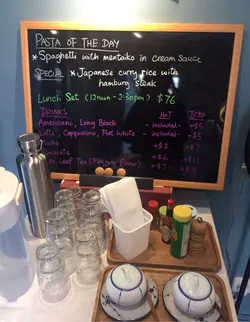 PASTA OF THE DAY
* Spaghetti with mentaiko in cream sauce
SPECIAL * Japanese curry rice with
hamburg steak
Lunch Set (12nn - 2:30pm) $76
DRINKS HOT ICED
Americano, Long Black - included - +$5
Latte, Cappuccino, Flat White - included - +$5
+$3
+$6
Leaf Tea